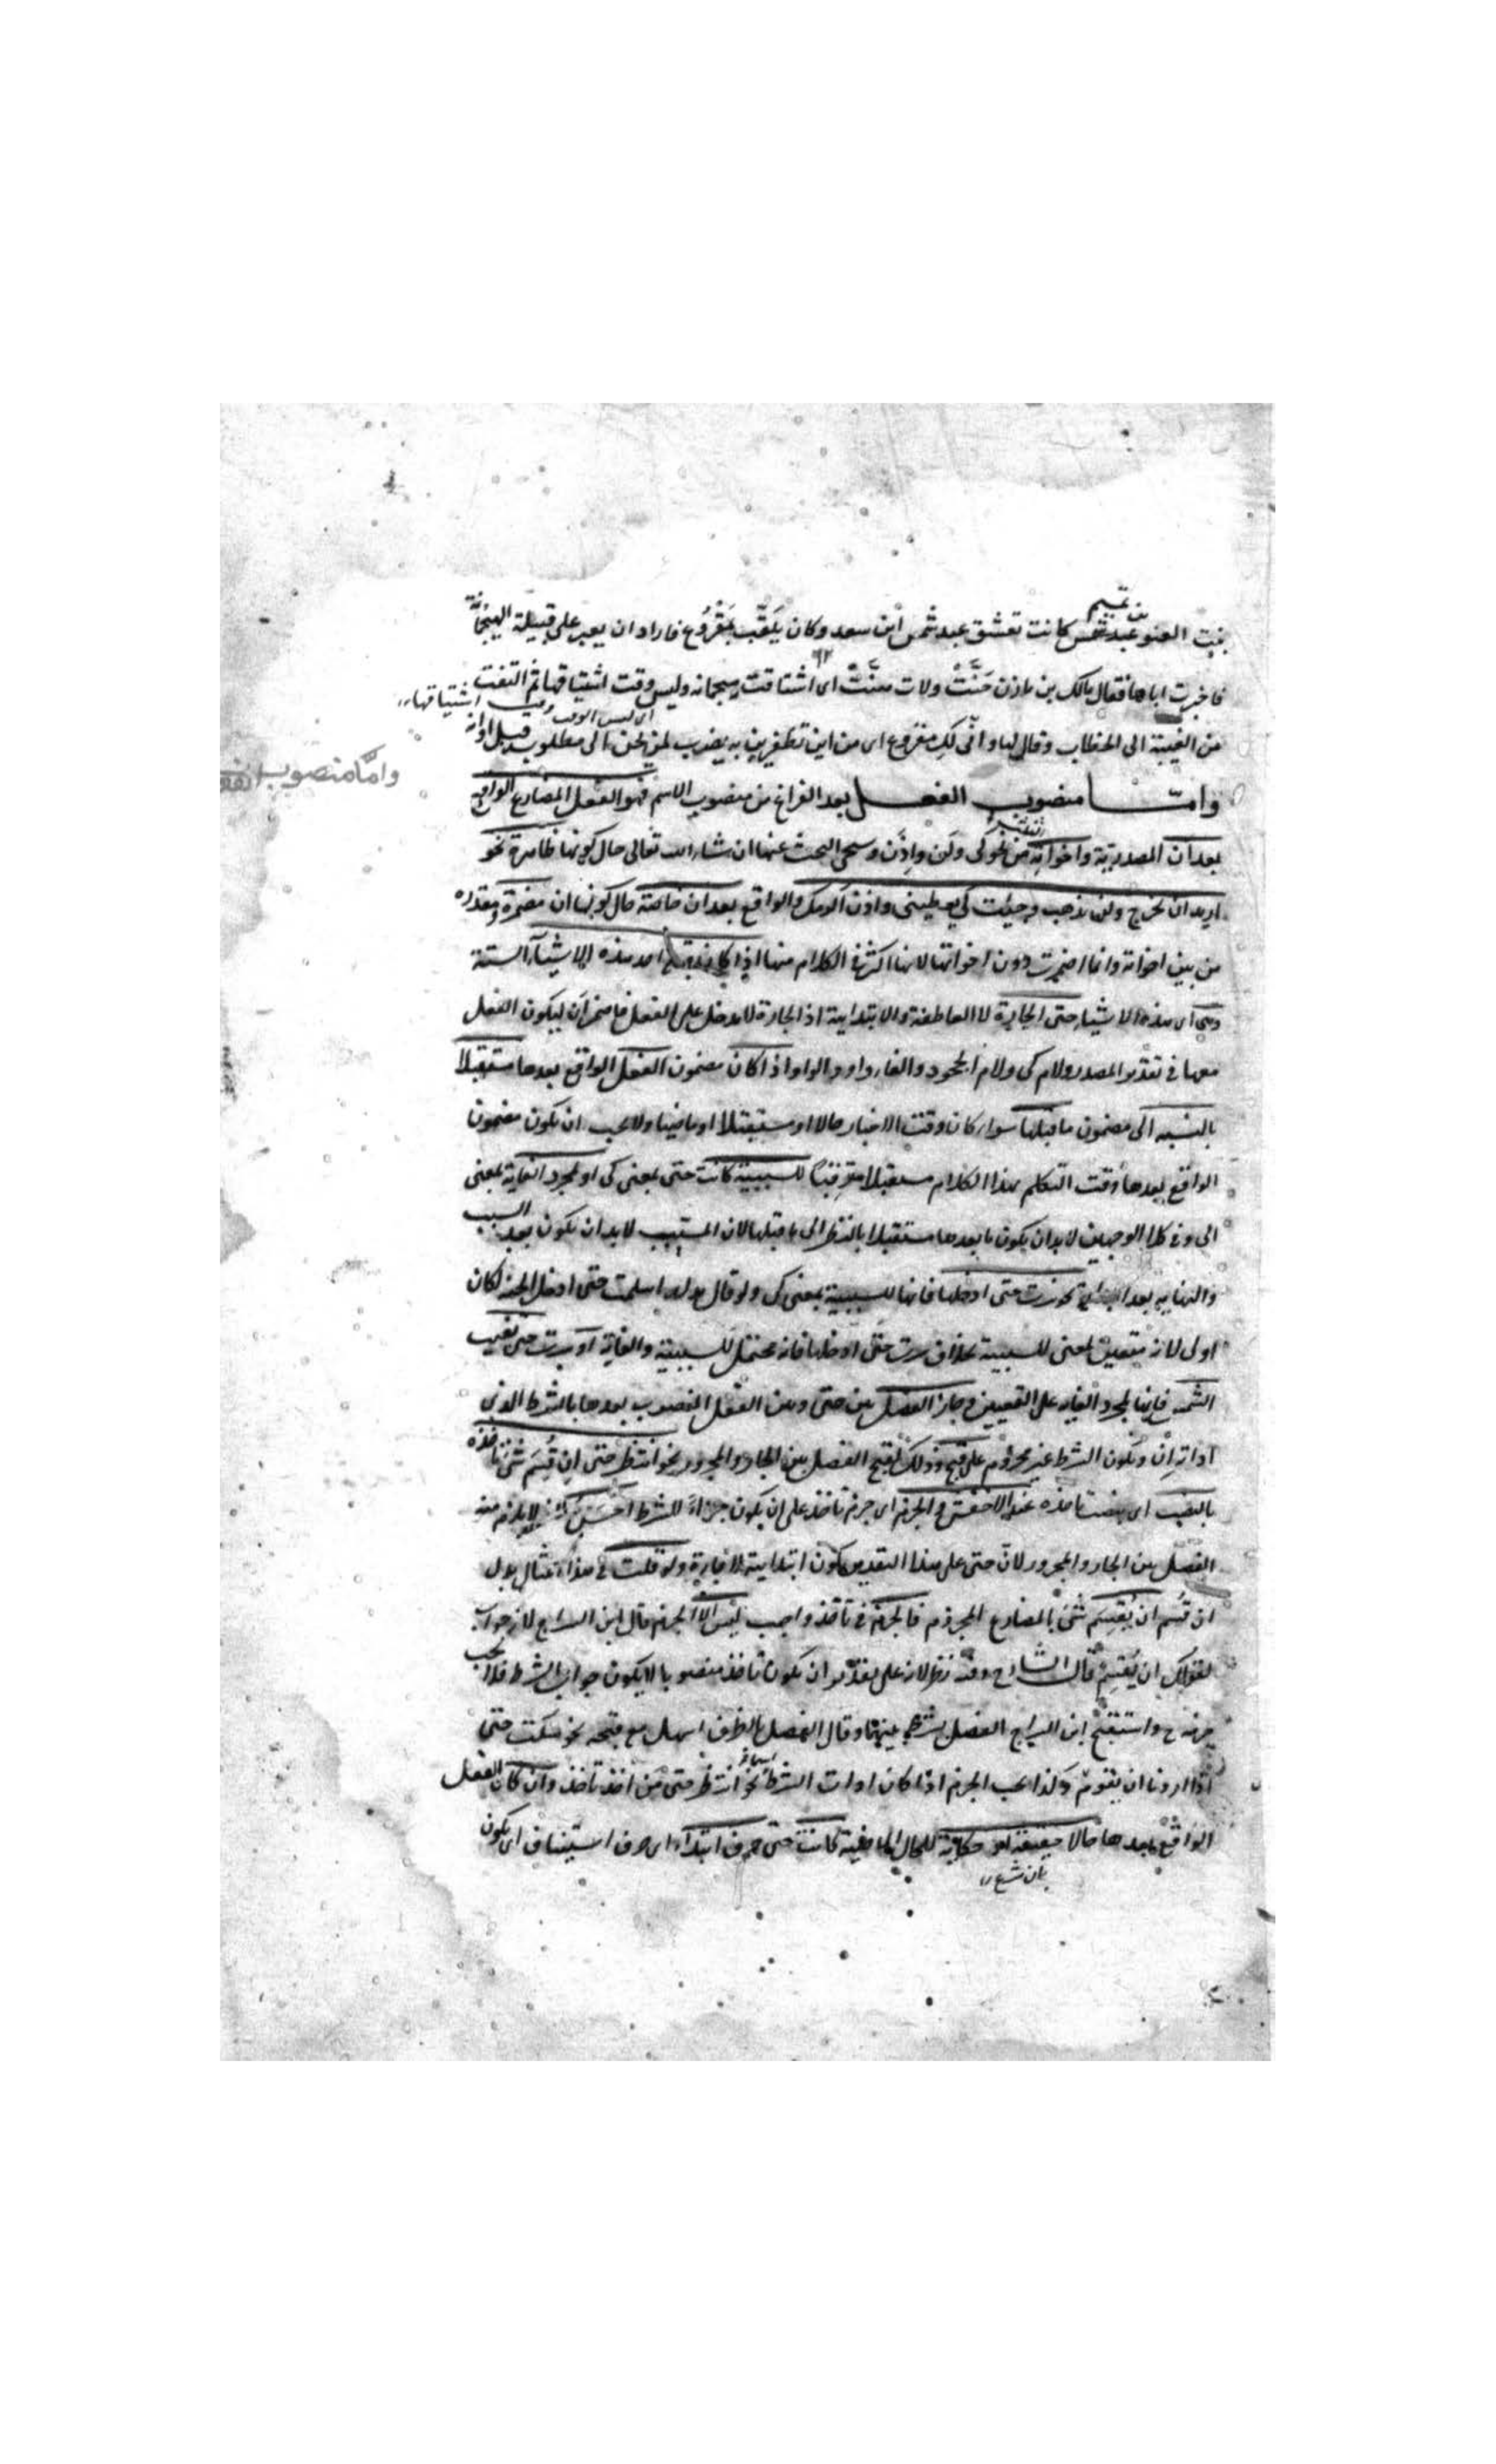 بن تميم
بنت العنبر عبد شمس كانت تعشق عبد شمس ابن سعد وكان يلقّب بمقروع فاراد ان يعير على قبيلة الهيجمانة
فاخبرت اباها فقال مالك بن مازن حَنَّتْ ولات هنَّتْ اى اشتاقت هيجمانه وليس وقت اشتياقها ثم التفت
اى ليس الوقت وقت اشتياقها
من الغيبة الى الخطاب وقال لها وانّى لكِ مقروع اى من اين تظفرين به يضرب لمن يحن الى مطلوب قبل اوانه
وامّا منصوب
وامّا منصوب الفعل بعد الفراغ من منصوب الاسم فهو الفعل المضارع الواقع
بعد ان المصدرية واخواته من نحو كى ولن واِذَن وسيجئ البحث عنها ان شاء الله تعالى حال كونها ظاهرة نحو
اريد ان تخرج ولن يذهب وجئت كى يعطينى واذن اكرمك والواقع بعد ان خاصة حال كونها ان مضمرة ومقدره
من بين اخواته وانما اضمرت دون اخواتها لانها اكثر فى الكلام منها اذا كان قبلها احد هذه الاشيآء الستة
وهى اى هذه الاشياء حتى الجارة لا العاطفة والابتدائية اذ الجارة لا تدخل على الفعل فاضمر اَن ليكون الفعل
معها فى تقدير المصدر ولام كى ولام الجحود والفاء واو والواو اذا كان مضمون الفعل الواقع بعدها مستقبلا
بالنسبه الى مضمون ما قبلها سواء كان وقت الاخبار حالا او مستقبلا او ماضيا ولا يجب ان يكون مضمون
الواقع بعدها وقت التكلم بهذا الكلام مستقبلا مترقبًا للسببية كانت حتى بمعنى كى او لمجرد الغاية بمعنى
الى وفى كلا الوجهين لابد ان يكون ما بعدها مستقبلا بالنظر الى ما قبلها لان المسبّب لابد ان يكون بعد السبب
والنهايه بعد نحو سرت حتى ادخلها فانها للسببية بمعنى كى ولو قال بدله اسلمت حتى ادخل الجنة لكان
اولى لانه متعين لمعنى للسببية بخلاف سرت حتى ادخلها فانه محتمل للسببية والغاية او سرت حتى تغيب
الشمس فانها لمجرد الغايه على التعيين وجاز الفصل بين حتى وبين الفعل المنصوب بعدها بالشرط الذى
اداته اِنْ ويكون الشرط غير مجزوم على قبح وذلك لقبح الفصل بين الجار والمجرور نحو انتظر حتى اِن قُسِمَ شئ تاخذه
بالنصب اى بنصب تاخذه عند الاخفش والجزم اى جزم تاخذ على ان يكون جزاءً للشرط احسن لانه لا يلزم منه
الفصل بين الجار والمجرور لان حتى على هذا التقدير يكون ابتدائية لا جارة ولو قلت فى هذا المثال بدل
ان قُسم ان يُقسِم شئ بالمضارع المجزوم فالجزم فى تاخذ واجب ليس الا الجزم قال ابن السراج لانه جواب
لقولك ان يُقسِمْ قال الشارح وفيه نظر لان على تقدير ان يكون تاخذ منصوبا لا يكون جواب الشرط فلا يجب
جزمه ح واستقبح ابن السراج الفصل بينهما وقال الفصل بالظرف اسهل مع قبحه نحو سكت حتى
اذا اردنا ان يقوم وكذا يجب الجزم اذا كان ادات الشرط اسما نحو انتظر حتى مَن اخذ تاخذ وان كان الفعل
الواقع بعدها حالا حقيقة او حكاية للحال الماضية كانت حتى حرف ابتداء اى حرف استيناف اى يكون